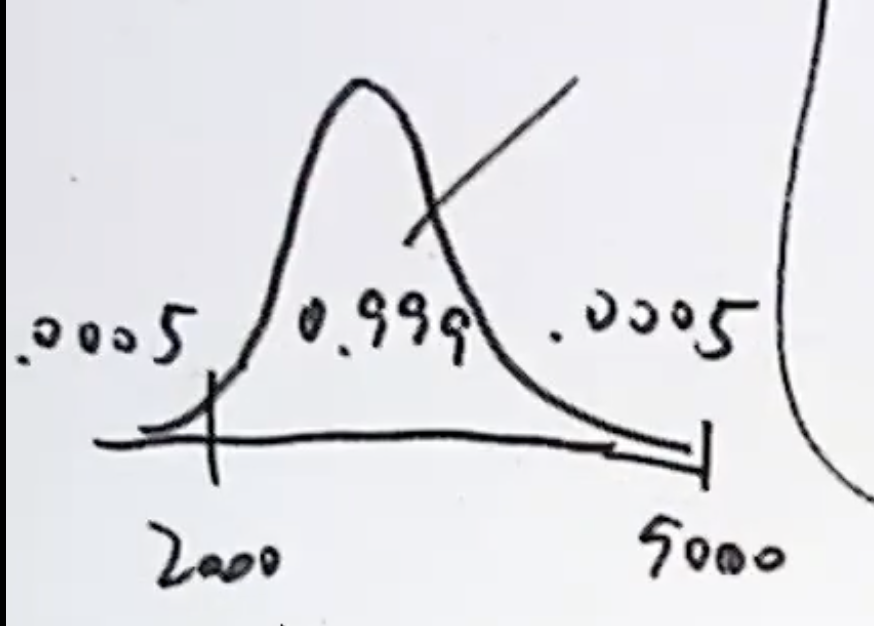 .0005 0.999 .0005
2000 5000